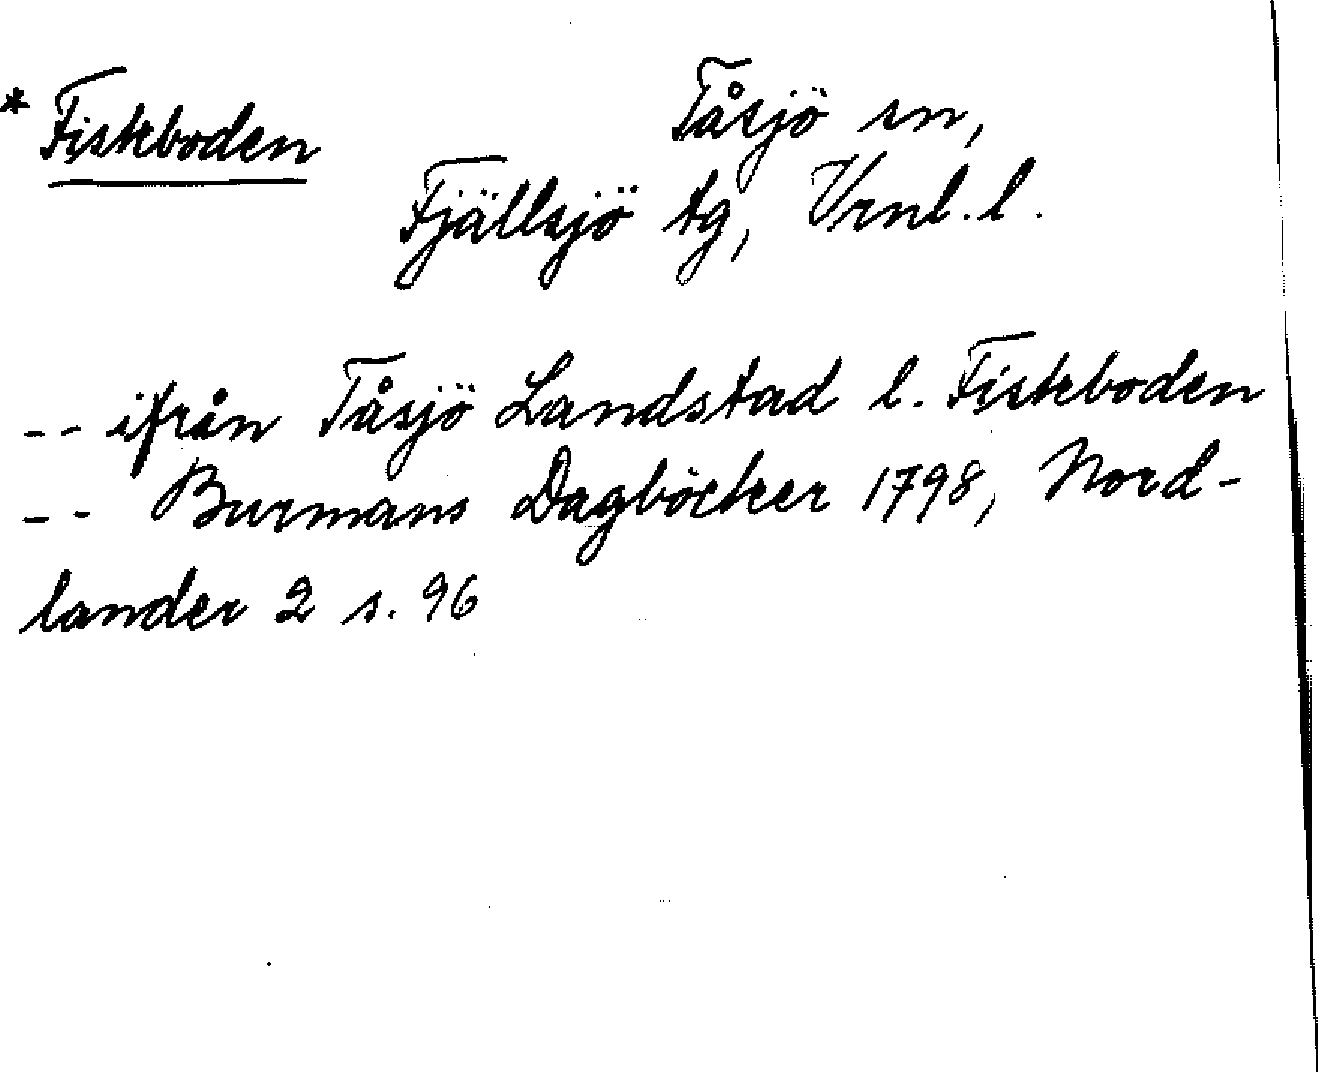 * Fiskboden
Tåsjö sn,
Fjällsjö tg, Vrnl. l.
-- ifrån Tåsjö Landstad l. Fiskboden
-- Burmans Dagböcker 1798, Nord-
lander 2 s. 96